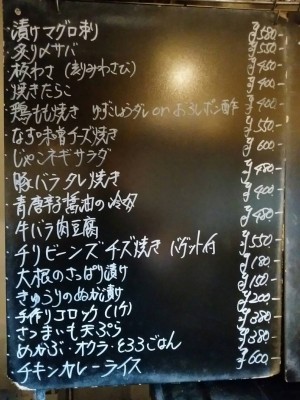 漬けマグロ刺 ¥580-
炙り〆サバ ¥550-
板わさ (刻みわさび) ¥450
焼きたらこ ¥400
鶏もも焼き ゆずしょうタレ or おろしポン酢
なす味噌チーズ焼き ¥550
じゃこネギサラダ ¥600
豚バラタレ焼き ¥480
青唐辛子醤油の冷奴 ¥400
牛バラ肉豆腐 ¥480
チリビーンズチーズ焼き バゲット付 ¥550
大根のさっぱり漬け ¥180
きゅうりのぬか漬け ¥150
手作りコロッケ(1ケ) ¥200
さつまいも天ぷら ¥380
めかぶ・オクラ・とろろごはん ¥380
チキンカレーライス ¥600